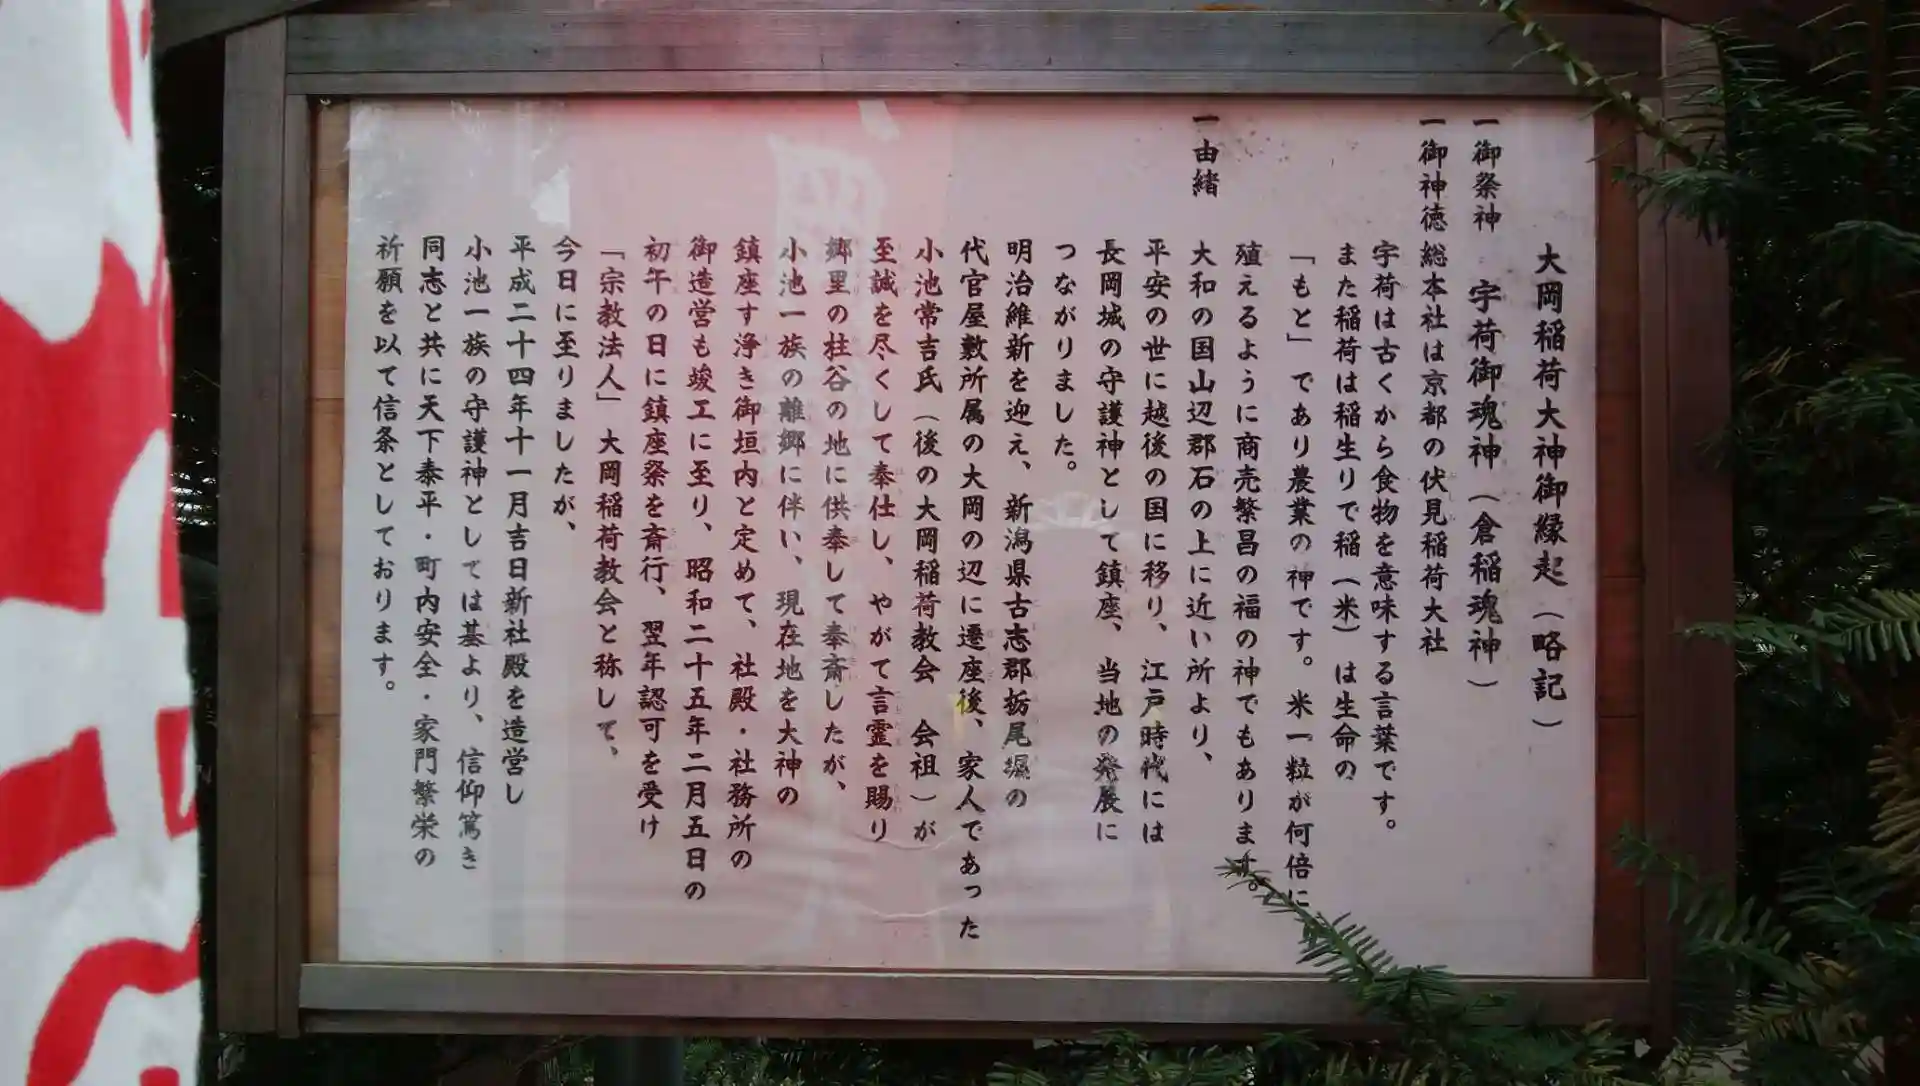 大岡稲荷大神御縁起（略記）
一御祭神　宇荷御魂神（倉稲魂神）
一御神徳　総本社は京都の伏見稲荷大社
宇荷は古くから食物を意味する言葉です。
また稲荷は稲生りで稲（米）は生命の
「もと」であり農業の神です。米一粒が何倍に
殖えるように商売繁昌の福の神でもあります。
一由緒　大和の国山辺郡石の上に近い所より、
平安の世に越後の国に移り、江戸時代には
長岡城の守護神として鎮座、当地の発展に
つながりました。
明治維新を迎え、新潟県古志郡栃尾堀の
代官屋敷所属の大岡の辺に遷座後、家人であった
小池常吉氏（後の大岡稲荷教会　会祖）が
至誠を尽くして奉仕し、やがて言霊を賜り
郷里の柱谷の地に供奉して奉斎したが、
小池一族の離郷に伴い、現在地を大神の
鎮座す浄き御垣内と定めて、社殿・社務所の
御造営も竣工に至り、昭和二十五年二月五日の
初午の日に鎮座祭を斎行、翌年認可を受け
「宗教法人」大岡稲荷教会と称して、
今日に至りましたが、
平成二十四年十一月吉日新社殿を造営し
小池一族の守護神としては基より、信仰篤き
同志と共に天下泰平・町内安全・家門繁栄の
祈願を以て信条としております。